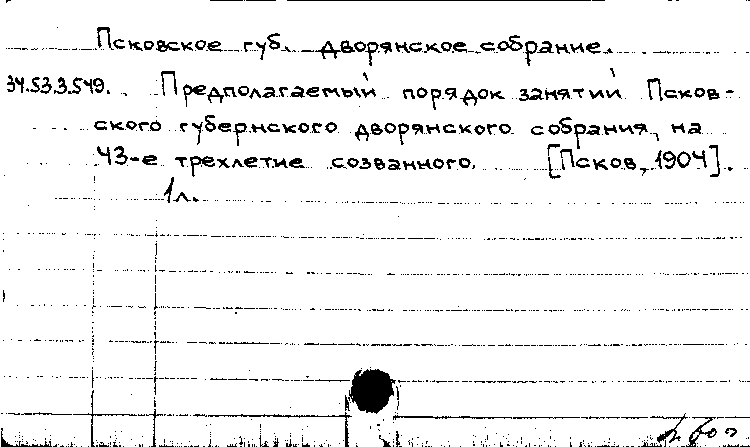 Псковское губ. дворянское собрание.
34.53.3.549. Предполагаемый порядок занятий Псков-
ского губернского дворянского собрания, на
43-е трехлетие созванного. [Псков, 1904].
1 л.